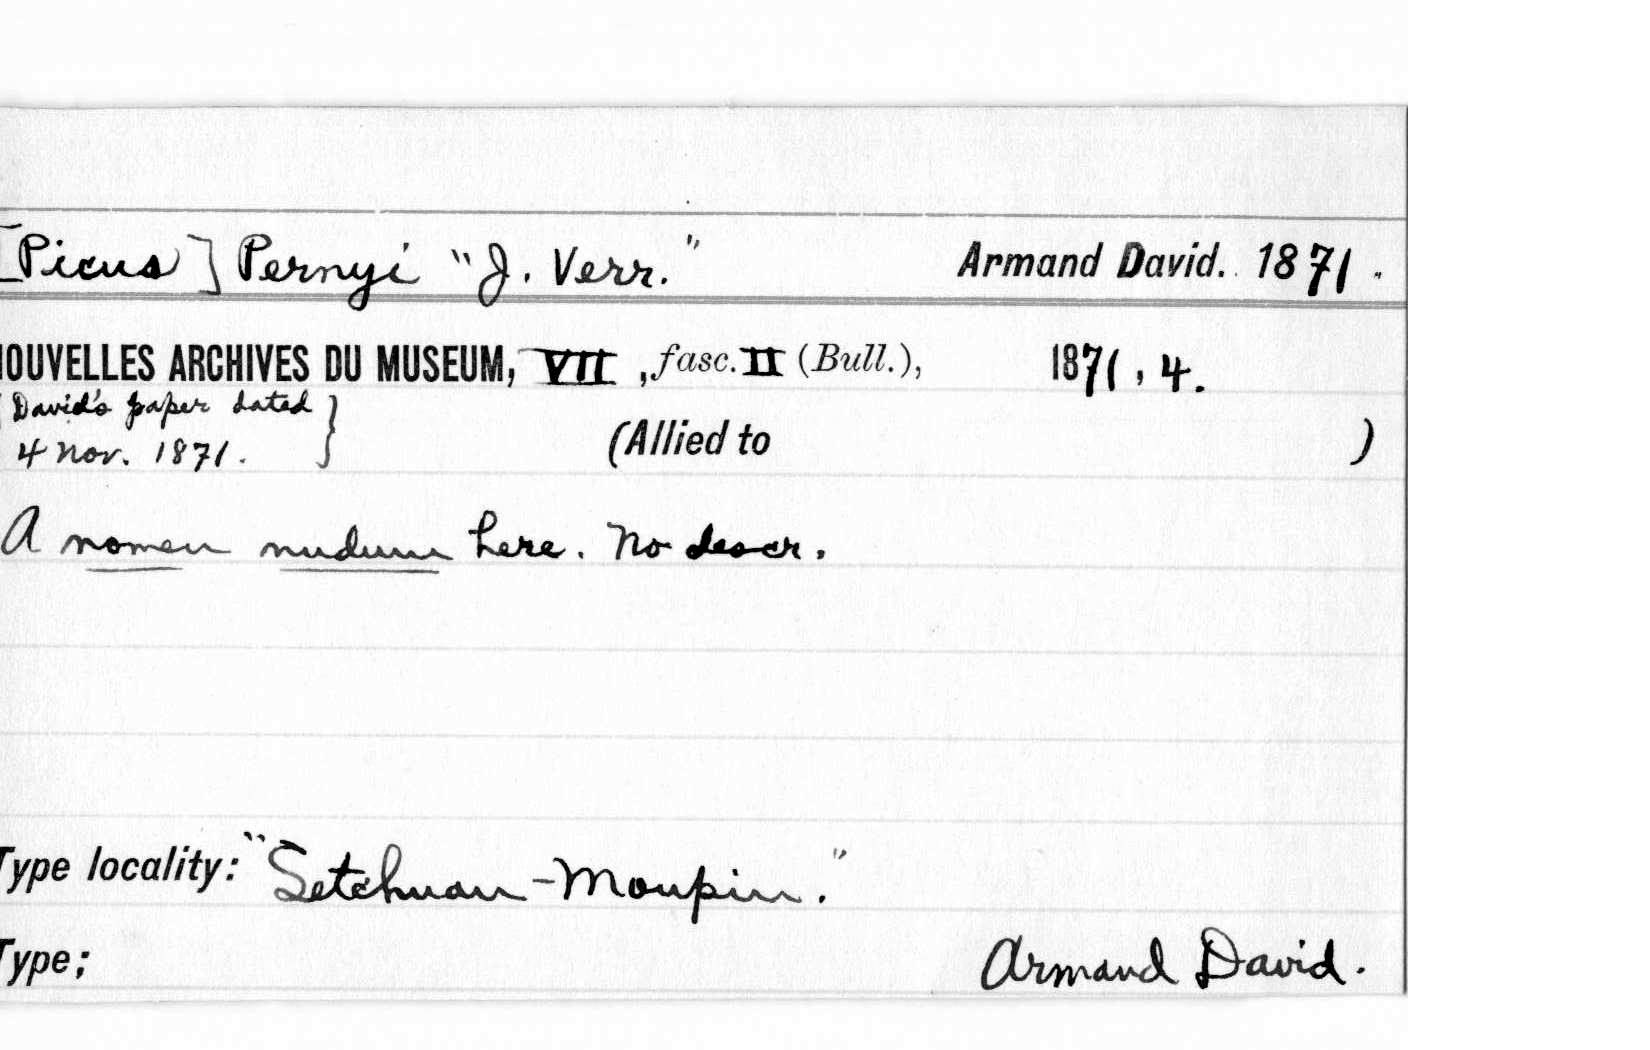 [Picus] Pernyi "J. Verr." Armand David. 1871.
NOUVELLES ARCHIVES DU MUSEUM, VII, fasc. II (Bull.), 1871, 4.
{David's paper dated
4 Nov. 1871.}
(Allied to )
A nomen nudum here. No descr.
Type locality: "Setchuan-Moupin."
Type; Armand David.